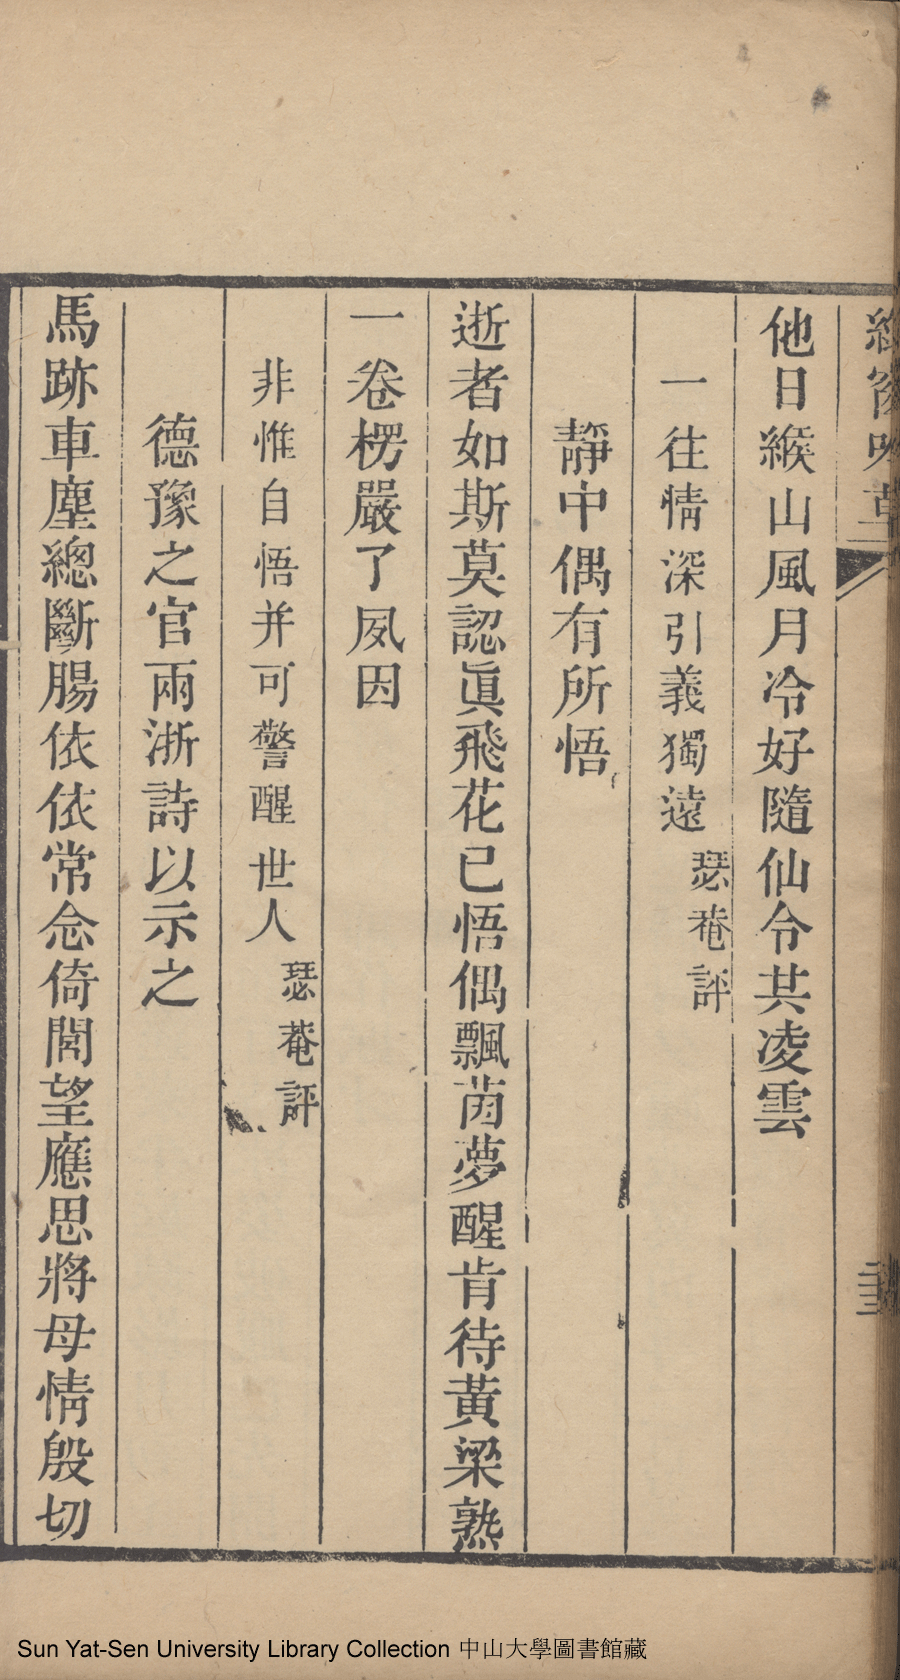 他日緱山風月冷好隨仙令共凌雲
一往情深引義獨遠 瑟菴評
靜中偶有所悟
逝者如斯莫認眞飛花已悟偶飄茵夢醒肯待黃粱熟
一卷楞嚴了夙因
非惟自悟并可警醒世人 瑟菴評
德豫之官兩浙詩以示之
馬跡車塵總斷腸依依常念倚閭望應思將母情殷切
Sun Yat-Sen University Library Collection 中山大學圖書館藏